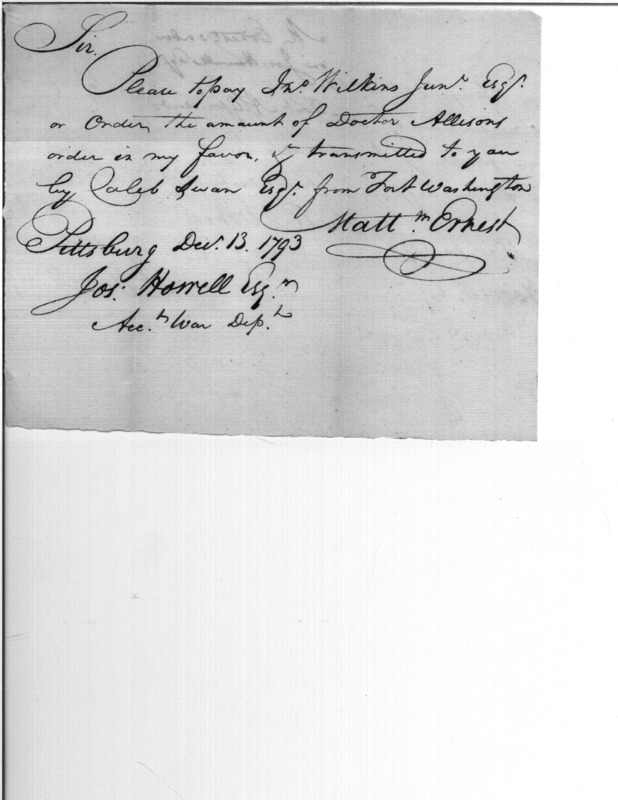 Sir.
Please to pay Jno. Wilkins Junr. Esqr.
or Order, the amount of Doctor Allisons
order in my favor, & transmitted to you
by Caleb Swan Esqr. from Fort Washington
Mattw. Ernest
Pittsburg Decr. 13. 1793
Jos. Howell Esqr.
Acct. War Dept.